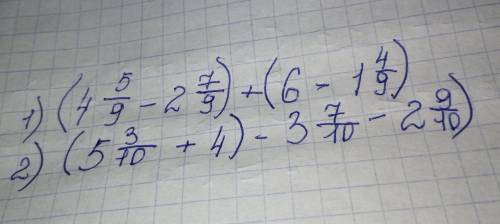 1) (4 5/9 - 2 7/9) + (6 - 1 4/9)
2) (5 3/10 + 4) - 3 7/10 - 2 9/10)